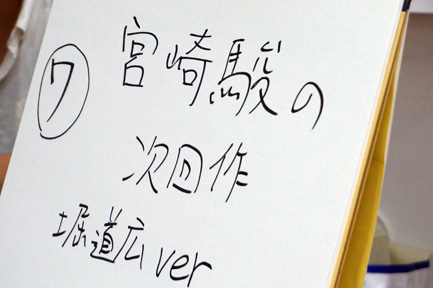 ワ 宮崎駿の
次回作
堀道広ver